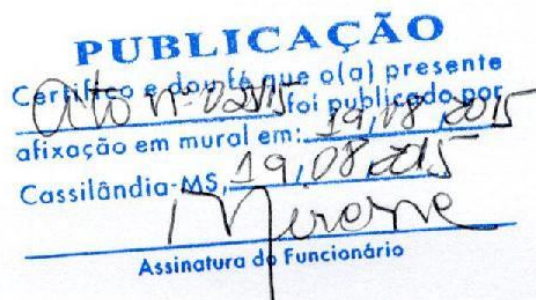 PUBLICAÇÃO
Certifico e dou fé que o(a) presente
Ato nº 025/15 foi publicado por
afixação em mural em: 19,08,2015
Cassilândia-MS, 19,08,2015
Assinatura do Funcionário